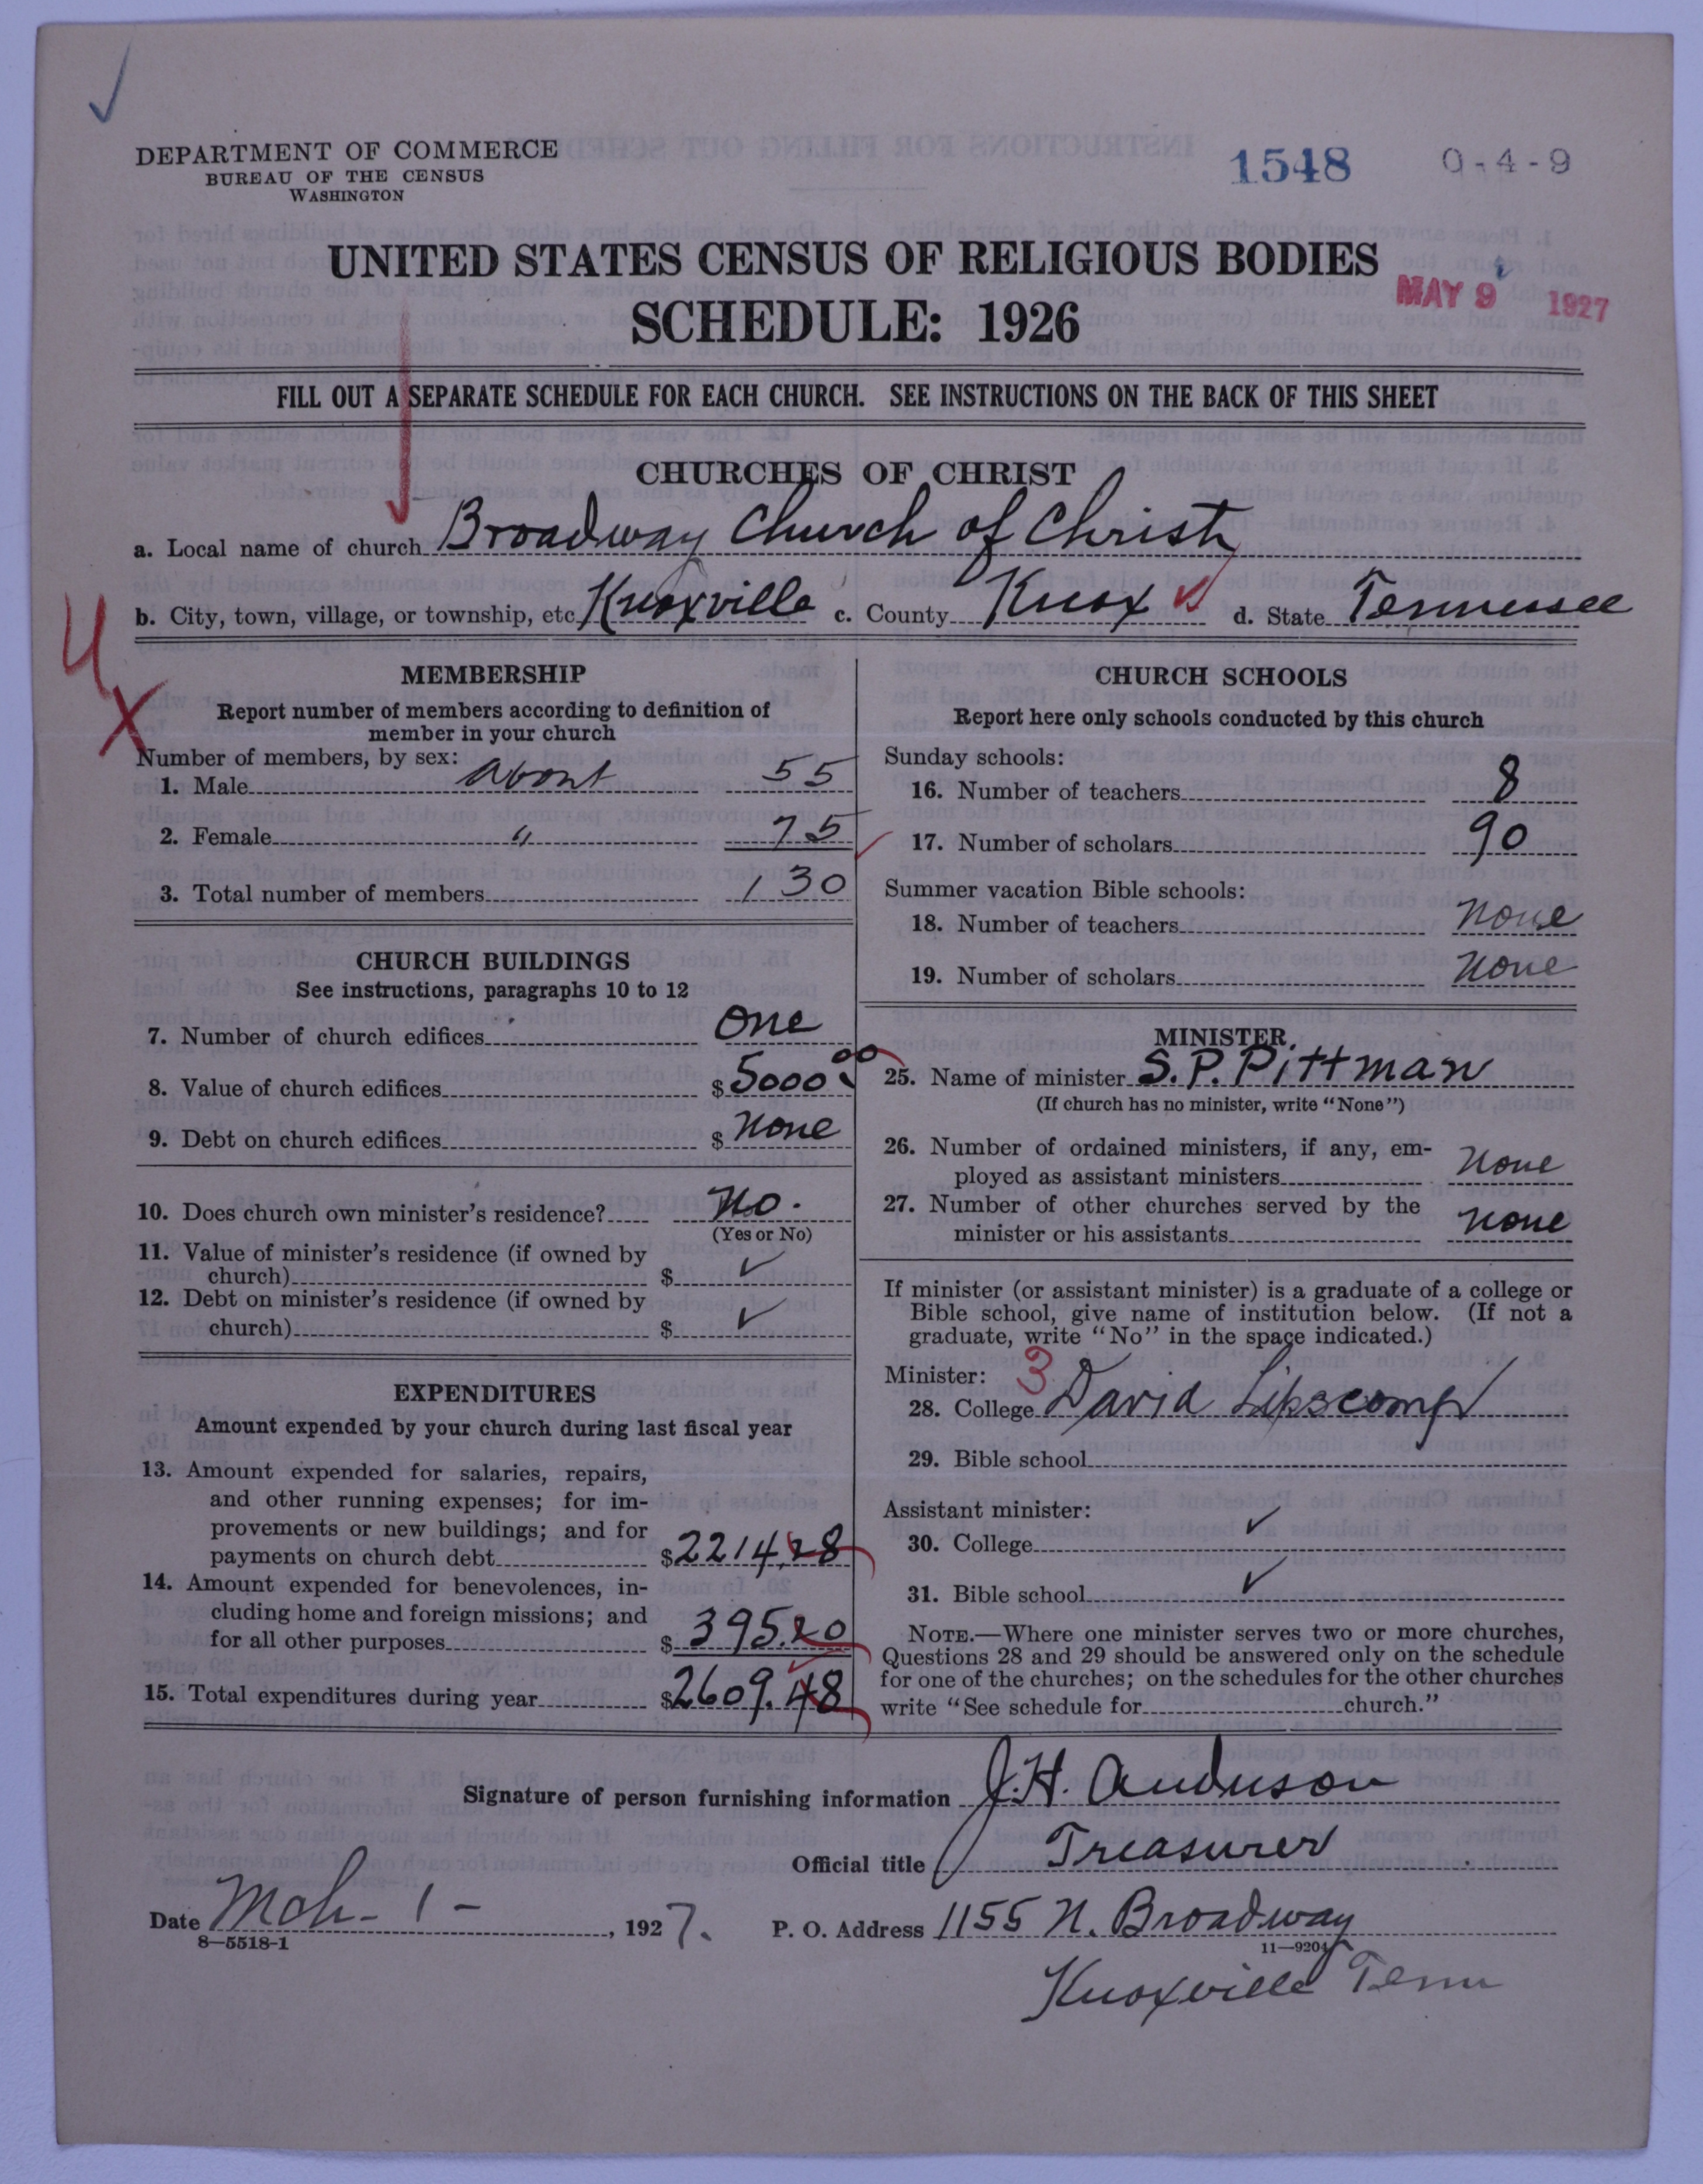 DEPARTMENT OF COMMERCE
BUREAU OF THE CENSUS
WASHINGTON
1548 0-4-9
UNITED STATES CENSUS OF RELIGIOUS BODIES
SCHEDULE: 1926
MAY 9 1927
FILL OUT A SEPARATE SCHEDULE FOR EACH CHURCH. SEE INSTRUCTIONS ON THE BACK OF THIS SHEET
CHURCHES OF CHRIST
a. Local name of church Broadway Church of Christ
b. City, town, village, or township, etc Knoxville c. County Knox d. State Tennessee
MEMBERSHIP
Report number of members according to definition of
member in your church
Number of members, by sex:
1. Male about 55
2. Female " 75
3. Total number of members 130
CHURCH BUILDINGS
See instructions, paragraphs 10 to 12
7. Number of church edifices One
8. Value of church edifices $ 5000.00
9. Debt on church edifices $ None
10. Does church own minister's residence? No.
(Yes or No)
11. Value of minister's residence (if owned by
church) $ ✓
12. Debt on minister's residence (if owned by
church) $ ✓
EXPENDITURES
Amount expended by your church during last fiscal year
13. Amount expended for salaries, repairs,
and other running expenses; for im-
provements or new buildings; and for
payments on church debt $ 2214.28
14. Amount expended for benevolences, in-
cluding home and foreign missions; and
for all other purposes $ 395.20
15. Total expenditures during year $ 2609.48
CHURCH SCHOOLS
Report here only schools conducted by this church
Sunday schools:
16. Number of teachers 8
17. Number of scholars 90
Summer vacation Bible schools:
18. Number of teachers None
19. Number of scholars None
MINISTER
25. Name of minister S.P. Pittman
(If church has no minister, write "None")
26. Number of ordained ministers, if any, em-
ployed as assistant ministers None
27. Number of other churches served by the
minister or his assistants None
If minister (or assistant minister) is a graduate of a college or
Bible school, give name of institution below. (If not a
graduate, write "No" in the space indicated.)
Minister: 3
28. College David Lipscomb
29. Bible school
Assistant minister:
30. College ✓
31. Bible school ✓
NOTE.—Where one minister serves two or more churches,
Questions 28 and 29 should be answered only on the schedule
for one of the churches; on the schedules for the other churches
write "See schedule for church."
Signature of person furnishing information J.H. Anderson
Official title Treasurer
Date Mch- 1 -, 1927. P. O. Address 1155 N. Broadway
8—5518-1 11—9204
Knoxville Tenn